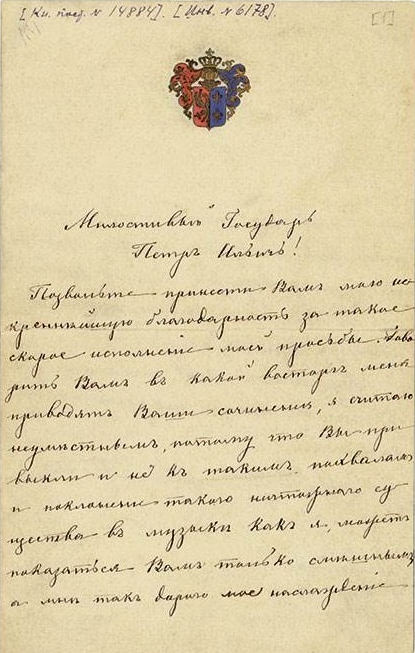 [Кн. пост. № 14884]. [Инв. № 6178].
[1]
Милостивый Государь
Петръ Ильичъ!
Позвольте принести Вамъ мою ис
креннѣйшую благодарность за такое
скорое исполненіе моей просьбы. Гово
рить Вамъ въ какой восторгъ меня
приводятъ Ваши сочиненія, я считаю
неумѣстнымъ, потому что Вы при
выкли и не къ такимъ похваламъ
и поклоненіе такого ничтожнаго су
щества въ музыкѣ какъ я, можетъ
показаться Вамъ только смѣшнымъ
а мнѣ такъ дорого мое наслажденіе